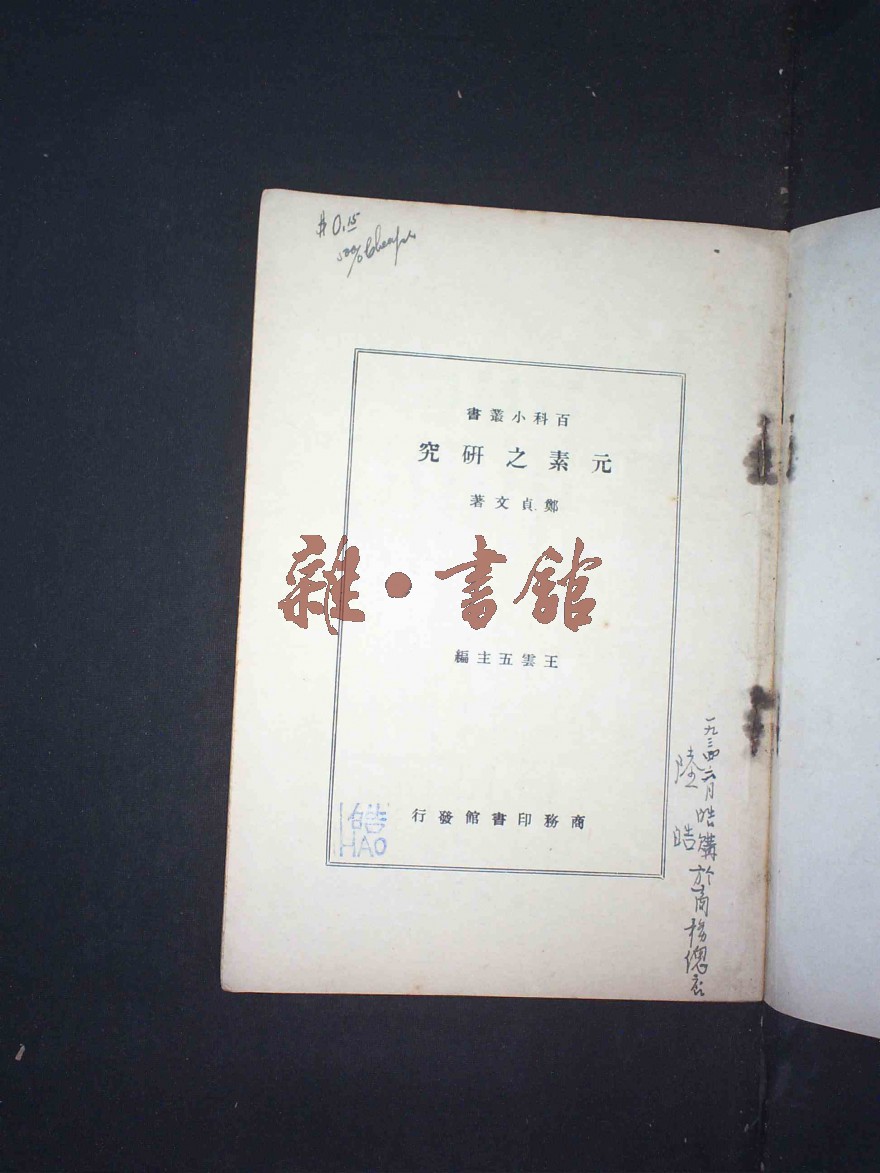 $0.15
百科小叢書
元素之研究
鄭貞文著
雜·書館
王雲五主編
商務印書館發行
皓
HAO
一九三四六月皓購於商務總店
陸皓